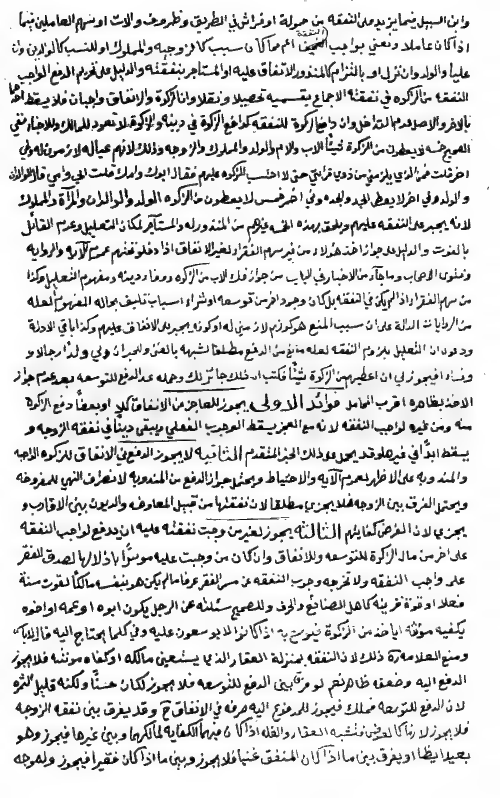 وابن السبيل فيما يزيد على النفقة من حمولة او فراش في الطريق وظروف والات اوبسهم العاملين فيما
اذا كان عاملا ونعني بواجب النفقة اعم مما كان سبب كالزوجية والمملوك او للنسب كالوالدين وان
عليا والولد وان نزل او بالتزام كالمنذور الانفاق عليه او المستاجر بنفقته والدليل على تحريم الدفع لواجب
النفقة من الزكوة في نفقته الاجماع بقسميه تحصيلا ونقلا وان الزكوة والانفاق واجبان فلا يسقط احدهما
بالاخر والاصل عدم التداخل وان دافع الزكوة للنفقة كدافع الزكوة في دينه والزكوة لا تعود للمالك وللاخبار ففي
الصحيح خمسة لا يعطون من الزكوة شيئا الاب والام والولد والمملوك والزوجة وذلك لانهم عياله لازمون له وفي
اخر قلت فمن الذي يلزمني من ذوي قرابتي حتى لا احتسب الزكوة عليهم فقال ابوك وامك قلت ابي وامي قال الوالدان
والولد وفي اخر لا يعطى الجد والجدة وفي اخر خمس لا يعطون من الزكوة الولد والوالدان والمراة والمملوك
لانه يجبر على النفقة عليهم ويلحق بهذه الخمسة غيرهم من المنذور له والمستاجر لمكان التعليل وعدم القائل
بالفرق والدليل على جواز اخذ هؤلاء من غير سهم الفقراء لغير الانفاق اذا دخلوا تحتهم عموم الاية والرواية
وفتوى الاصحاب وما جاء من الاخبار في الباب من جواز فك الاب من الزكوة ووفاء دينه ومفهوم التعليل وكذا
من سهم الفقراء اذا لم يكن في النفقة بل كان وجود اخر من توسعة او شراء اسباب تليق بحاله لمفهوم العلة
من الروايات الدالة على ان سبب المنع هو كونهم لازمين له او كونه يجبر على الانفاق عليهم وكذا باقي الادلة
ودعوى ان التعليل بلزوم النفقة لعله مانع من الدفع مطلقا لشبهه بالغني وللخبر ان ولي ولدا رجالا و
ونساء افيجوز لي ان اعطيهم من الزكوة شيئا فكتب ان ذلك جائز لك وحمله عند الدفع للتوسعة بعد عدم جواز
الاخذ بظاهره اقرب المحامل فوائد الاولى يجوز للعاجز عن الانفاق كلا او بعضا دفع الزكوة
منه ومن غيره لواجب النفقة لانه مع العجز يسقط الوجوب الفعلي ويبقى دينا في نفقة الزوجة و
يسقط ابدا في غيرها وقد يحمل على ذلك الخبر المتقدم الثانية لا يجوز الدفع في الانفاق للزكوة الواجبة
والمندوبة على الاظهر لعموم الاية والاحتياط ويحتمل جواز الدفع من المندوبة لانصراف النهي للمفروضة
ويحتمل الفرق بين الزوجة فلا يجزي مطلقا لان نفقتها من قبيل المعاوضة والديون وبين الاقارب و
يجزي لان الغرض كفايتهم الثالثة يجوز لغير من وجبت نفقته عليه ان يدفع لواجب النفقة
على اخر من ماله الزكوة للتوسعة وللانفاق وان كان من وجبت عليه موسرا باذلا لها لصدق الفقر
على واجب النفقة ولا تخرجه وجوب النفقة عن سمة الفقر عرفا ما لم يكن هو بنفسه مالكا لقوت سنة
فعلا او قوة قريبة كاهل الصنائع والحرف وللصحيح سئلته عن الرجل يكون ابوه او عمه او اخوه
يكفيه مؤنته اياخذ من الزكوة فيوسع به اذا كانوا لا يوسعون عليه وفي كلما يحتاج اليه قال لا باس
ومنع العلامة ره ذلك لان النفقة بمنزلة العقار الذي يستعين مالكه او كفاه مؤنته فلا يجوز
الدفع اليه وضعفه ظاهر نعم لو فرق بين الدفع للتوسعة فلا يجوز لكان حسنا ولكنه قليل الثمرة
لان الدفع للتوسعة تملك فيجوز للمدفوع اليه صرفه في الانفاق ح وقد يفرق بين نفقة الزوجة
فلا يجوز لانها كالعوض فتشبه العقار والغلة اذا كان فيهما الكفاية لمالكهما وبين غيرها فيجوز وهو
بعيد ايضا او يفرق بين ما اذا كان المنفق غنيا فلا يجوز وبين ما اذا كان فقيرا فيجوز ولا وجه